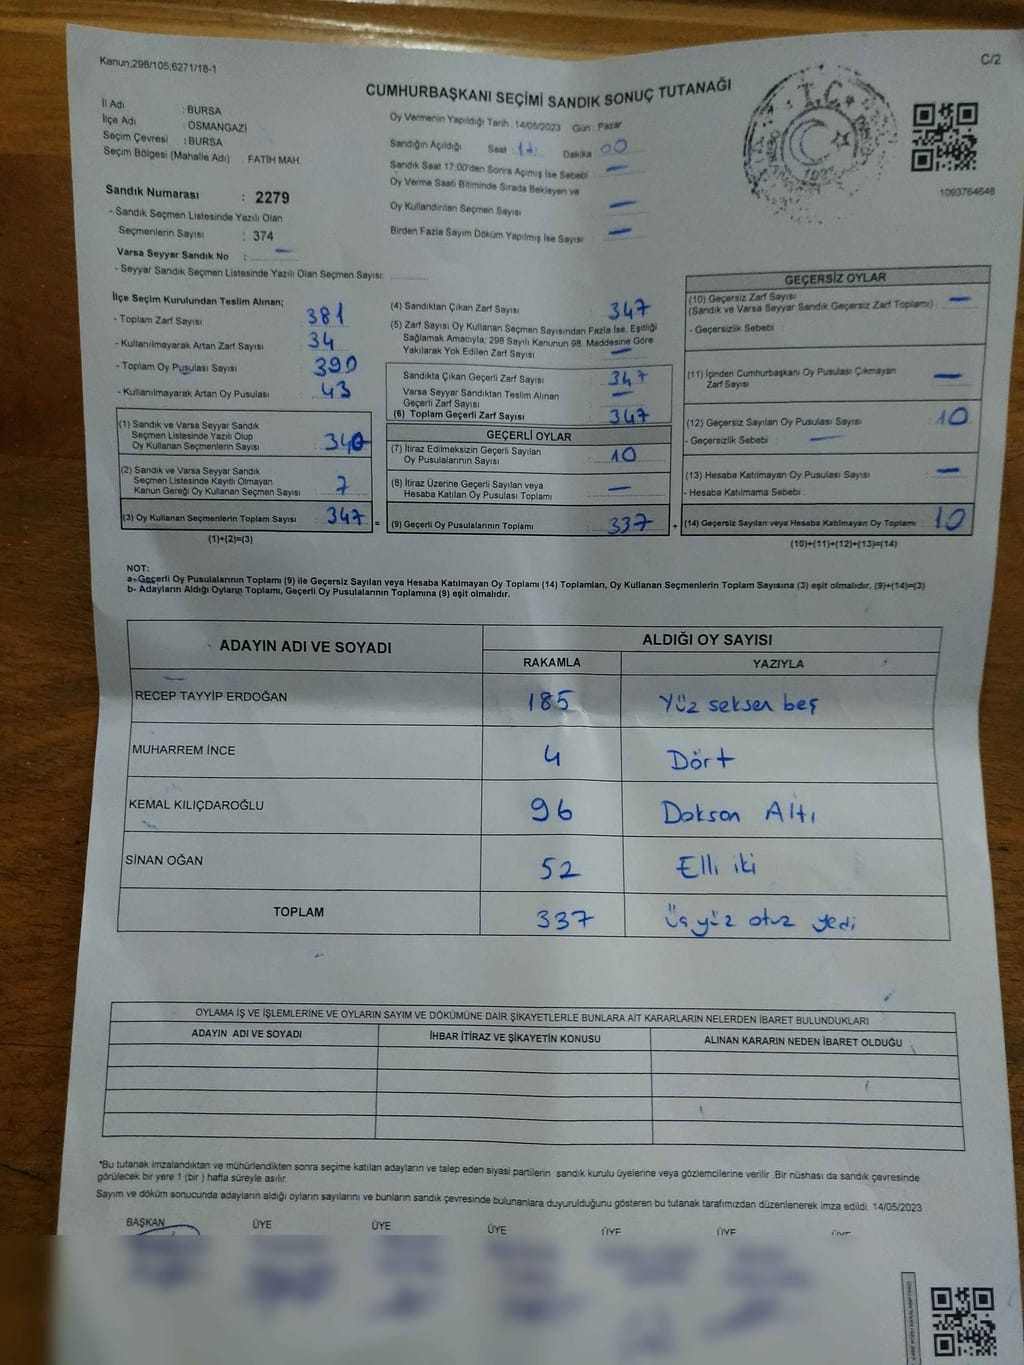 Kanun;298/105;6271/18-1
C/2
CUMHURBAŞKANI SEÇİMİ SANDIK SONUÇ TUTANAĞI
İl Adı : BURSA
İlçe Adı : OSMANGAZİ
Seçim Çevresi : BURSA
Seçim Bölgesi (Mahalle Adı) : FATİH MAH.
Sandık Numarası : 2279
- Sandık Seçmen Listesinde Yazılı Olan
Seçmenlerin Sayısı : 374
Varsa Seyyar Sandık No : —
- Seyyar Sandık Seçmen Listesinde Yazılı Olan Seçmen Sayısı:
Oy Vermenin Yapıldığı Tarih : 14/05/2023 Gün : Pazar
Sandığın Açıldığı Saat : Dakika 00
Sandık Saat 17:00'den Sonra Açımış İse Sebebi : —
Oy Verme Saati Bitiminde Sırada Bekleyen ve
Oy Kullandırılan Seçmen Sayısı —
Birden Fazla Sayım Döküm Yapılmış İse Sayısı —
T.C.
1093764648
İlçe Seçim Kurulundan Teslim Alınan;
- Toplam Zarf Sayısı : 381
- Kullanılmayarak Artan Zarf Sayısı : 34
- Toplam Oy Pusulası Sayısı : 390
- Kullanılmayarak Artan Oy Pusulası : 43
(1) Sandık ve Varsa Seyyar Sandık
Seçmen Listesinde Yazılı Olup
Oy Kullanan Seçmenlerin Sayısı : 340
(2) Sandık ve Varsa Seyyar Sandık
Seçmen Listesinde Kayıtlı Olmayan
Kanun Gereği Oy Kullanan Seçmen Sayısı : 7
(3) Oy Kullanan Seçmenlerin Toplam Sayısı : 347 =
(1)+(2)=(3)
(4) Sandıktan Çıkan Zarf Sayısı : 347
(5) Zarf Sayısı Oy Kullanan Seçmen Sayısından Fazla İse, Eşitliği
Sağlamak Amacıyla; 298 Sayılı Kanunun 98. Maddesine Göre
Yakılarak Yok Edilen Zarf Sayısı : —
Sandıkta Çıkan Geçerli Zarf Sayısı : 347
Varsa Seyyar Sandıktan Teslim Alınan
Geçerli Zarf Sayısı : —
(6) Toplam Geçerli Zarf Sayısı : 347
GEÇERLİ OYLAR
(7) İtiraz Edilmeksizin Geçerli Sayılan
Oy Pusulalarının Sayısı : 10
(8) İtiraz Üzerine Geçerli Sayılan veya
Hesaba Katılan Oy Pusulası Toplamı : —
(9) Geçerli Oy Pusulalarının Toplamı : 337 +
GEÇERSİZ OYLAR
(10) Geçersiz Zarf Sayısı
(Sandık ve Varsa Seyyar Sandık Geçersiz Zarf Toplamı) : —
- Geçersizlik Sebebi :
(11) İçinden Cumhurbaşkanı Oy Pusulası Çıkmayan
Zarf Sayısı : —
(12) Geçersiz Sayılan Oy Pusulası Sayısı : 10
- Geçersizlik Sebebi : —
(13) Hesaba Katılmayan Oy Pusulası Sayısı : —
- Hesaba Katılmama Sebebi :
(14) Geçersiz Sayılan veya Hesaba Katılmayan Oy Toplamı : 10
(10)+(11)+(12)+(13)=(14)
NOT:
a- Geçerli Oy Pusulalarının Toplamı (9) ile Geçersiz Sayılan veya Hesaba Katılmayan Oy Toplamı (14) Toplamları, Oy Kullanan Seçmenlerin Toplam Sayısına (3) eşit olmalıdır. (9)+(14)=(3)
b- Adayların Aldığı Oyların Toplamı, Geçerli Oy Pusulalarının Toplamına (9) eşit olmalıdır.
ADAYIN ADI VE SOYADI ALDIĞI OY SAYISI
RAKAMLA YAZIYLA
RECEP TAYYİP ERDOĞAN 185 Yüz seksen beş
MUHARREM İNCE 4 Dört
KEMAL KILIÇDAROĞLU 96 Doksan Altı
SİNAN OĞAN 52 Elli iki
TOPLAM 337 Üç yüz otuz yedi
OYLAMA İŞ VE İŞLEMLERİNE VE OYLARIN SAYIM VE DÖKÜMÜNE DAİR ŞİKAYETLERLE BUNLARA AİT KARARLARIN NELERDEN İBARET BULUNDUKLARI
ADAYIN ADI VE SOYADI İHBAR İTİRAZ VE ŞİKAYETİN KONUSU ALINAN KARARIN NEDEN İBARET OLDUĞU
*Bu tutanak imzalandıktan ve mühürlendikten sonra seçime katılan adayların ve talep eden siyasi partilerin sandık kurulu üyelerine veya gözlemcilerine verilir. Bir nüshası da sandık çevresinde
görülecek bir yere 1 (bir) hafta süreyle asılır.
Sayım ve döküm sonucunda adayların aldığı oyların sayılarını ve bunların sandık çevresinde bulunanlara duyurulduğunu gösteren bu tutanak tarafımızdan düzenlenerek imza edildi. 14/05/2023
BAŞKAN ÜYE ÜYE ÜYE ÜYE ÜYE ÜYE